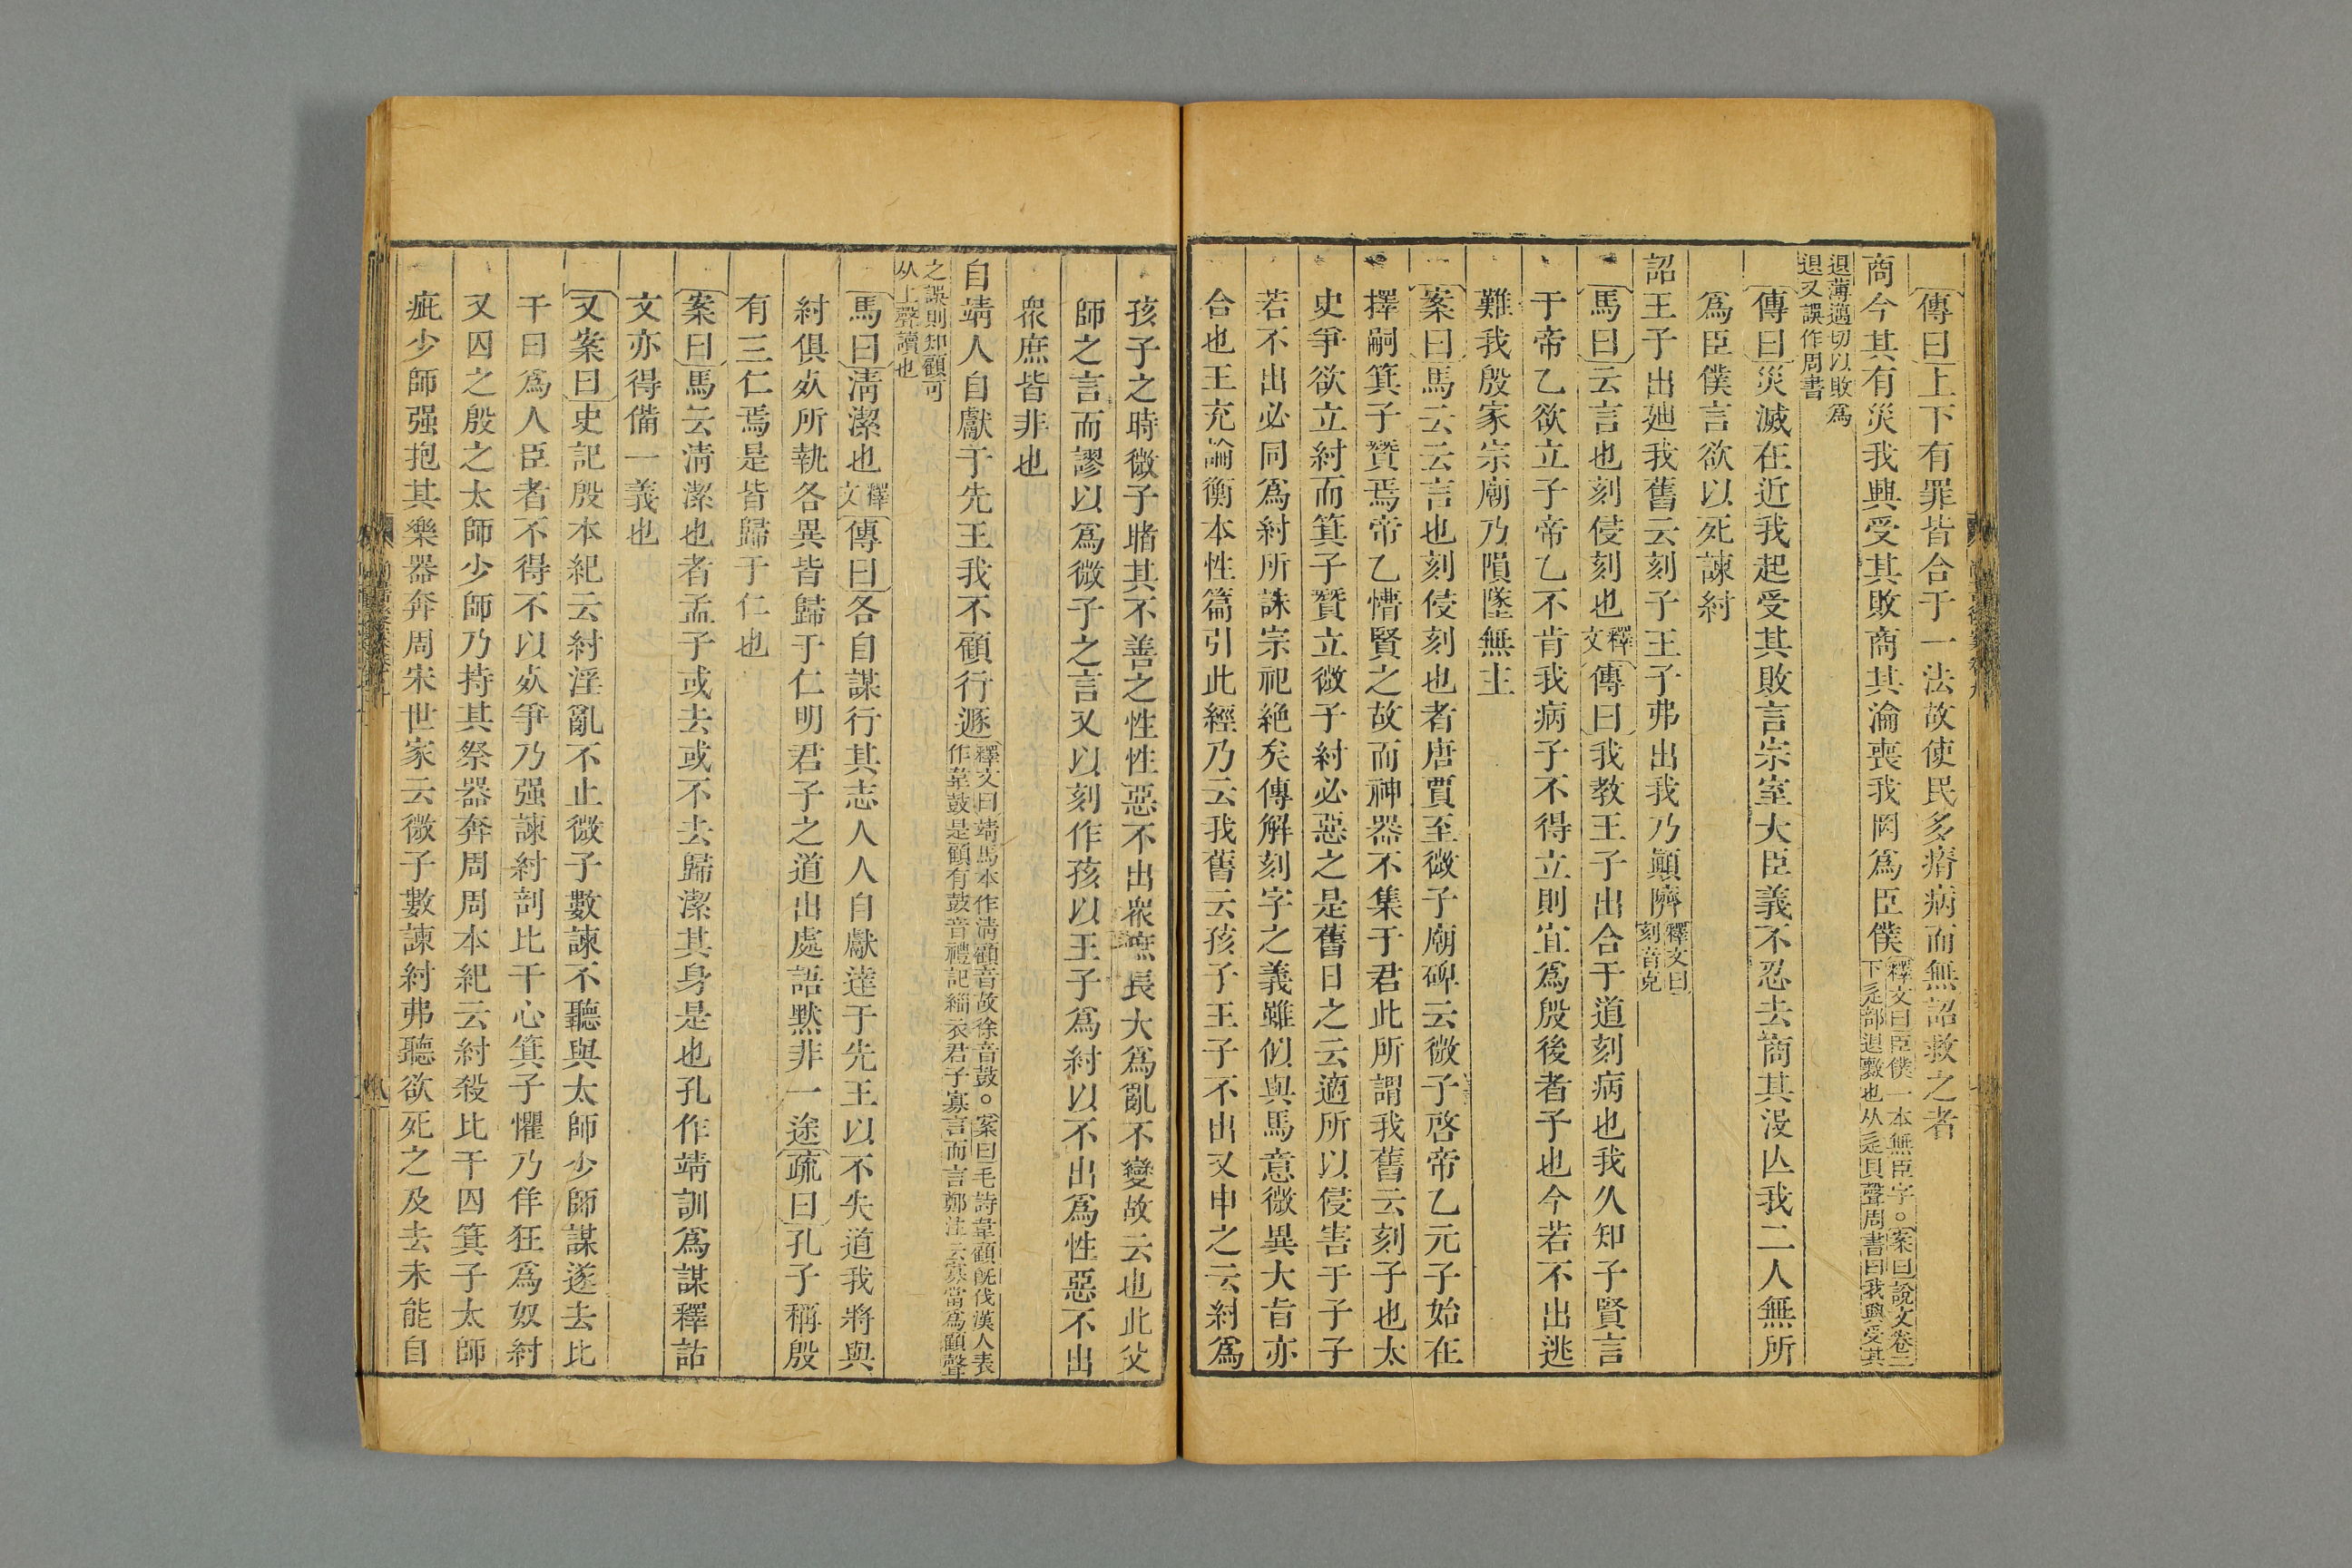 傳曰上下有罪皆合于一法故使民多瘠病而無詔救之者
商今其有災我興受其敗商其淪喪我罔爲臣僕釋文曰臣僕一本無臣字。案曰說文卷二
下辵部退斁也从辵貝聲周書曰我興受其
退薄邁切以敗爲
退又誤作周書
傳曰災滅在近我起受其敗言宗室大臣義不忍去商其沒亾我二人無所
爲臣僕言欲以死諫紂
詔王子出廸我舊云刻子王子弗出我乃顚隮釋文曰
刻音克
馬曰云言也刻侵刻也釋文傳曰我教王子出合于道刻病也我久知子賢言
于帝乙欲立子帝乙不肯我病子不得立則宜爲殷後者子也今若不出逃
難我殷家宗廟乃隕墜無主
案曰馬云云言也刻侵刻也者唐賈至微子廟碑云微子啓帝乙元子始在
擇嗣箕子贊焉帝乙慒賢之故而神器不集于君此所謂我舊云刻子也太
史爭欲立紂而箕子贊立微子紂必惡之是舊日之云適所以侵害于子子
若不出必同爲紂所誅宗祀絶矣傳解刻字之義雖似與馬意微異大旨亦
合也王充論衡本性篇引此經乃云我舊云孩子王子不出又申之云紂爲
孩子之時微子睹其不善之性性惡不出衆庶長大爲亂不變故云也此父
師之言而謬以爲微子之言又以刻作孩以王子爲紂以不出爲性惡不出
衆庶皆非也
自靖人自獻于先王我不顧行遯釋文曰靖馬本作淸顧音故徐音鼓。案曰毛詩韋顧旣伐漢人表
作韋鼓是顧有鼓音禮記緇衣君子寡言而言鄭注云寡當爲顧聲
之誤則知顧可
从上聲讀也
馬曰淸潔也釋文傳曰各自謀行其志人人自獻達于先王以不失道我將與
紂俱死所執各異皆歸于仁明君子之道出處語默非一途疏曰孔子稱殷
有三仁焉是皆歸于仁也
案曰馬云淸潔也者孟子或去或不去歸潔其身是也孔作靖訓爲謀釋詁
文亦得備一義也
又案曰史記殷本紀云紂淫亂不止微子數諫不聽與太師少師謀遂去比
干曰爲人臣者不得不以死爭乃强諫紂剖比干心箕子懼乃佯狂爲奴紂
又囚之殷之太師少師乃持其祭器奔周周本紀云紂殺比干囚箕子太師
疵少師强抱其樂器奔周宋世家云微子數諫紂弗聽欲死之及去未能自